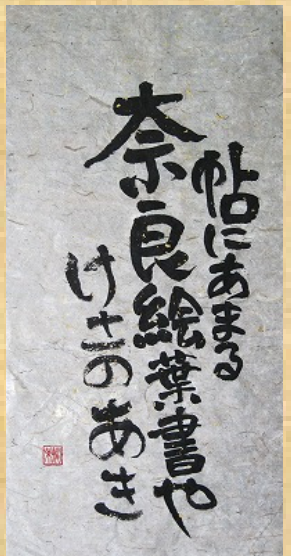 帖にあまる
奈良絵葉書や
けさのあき